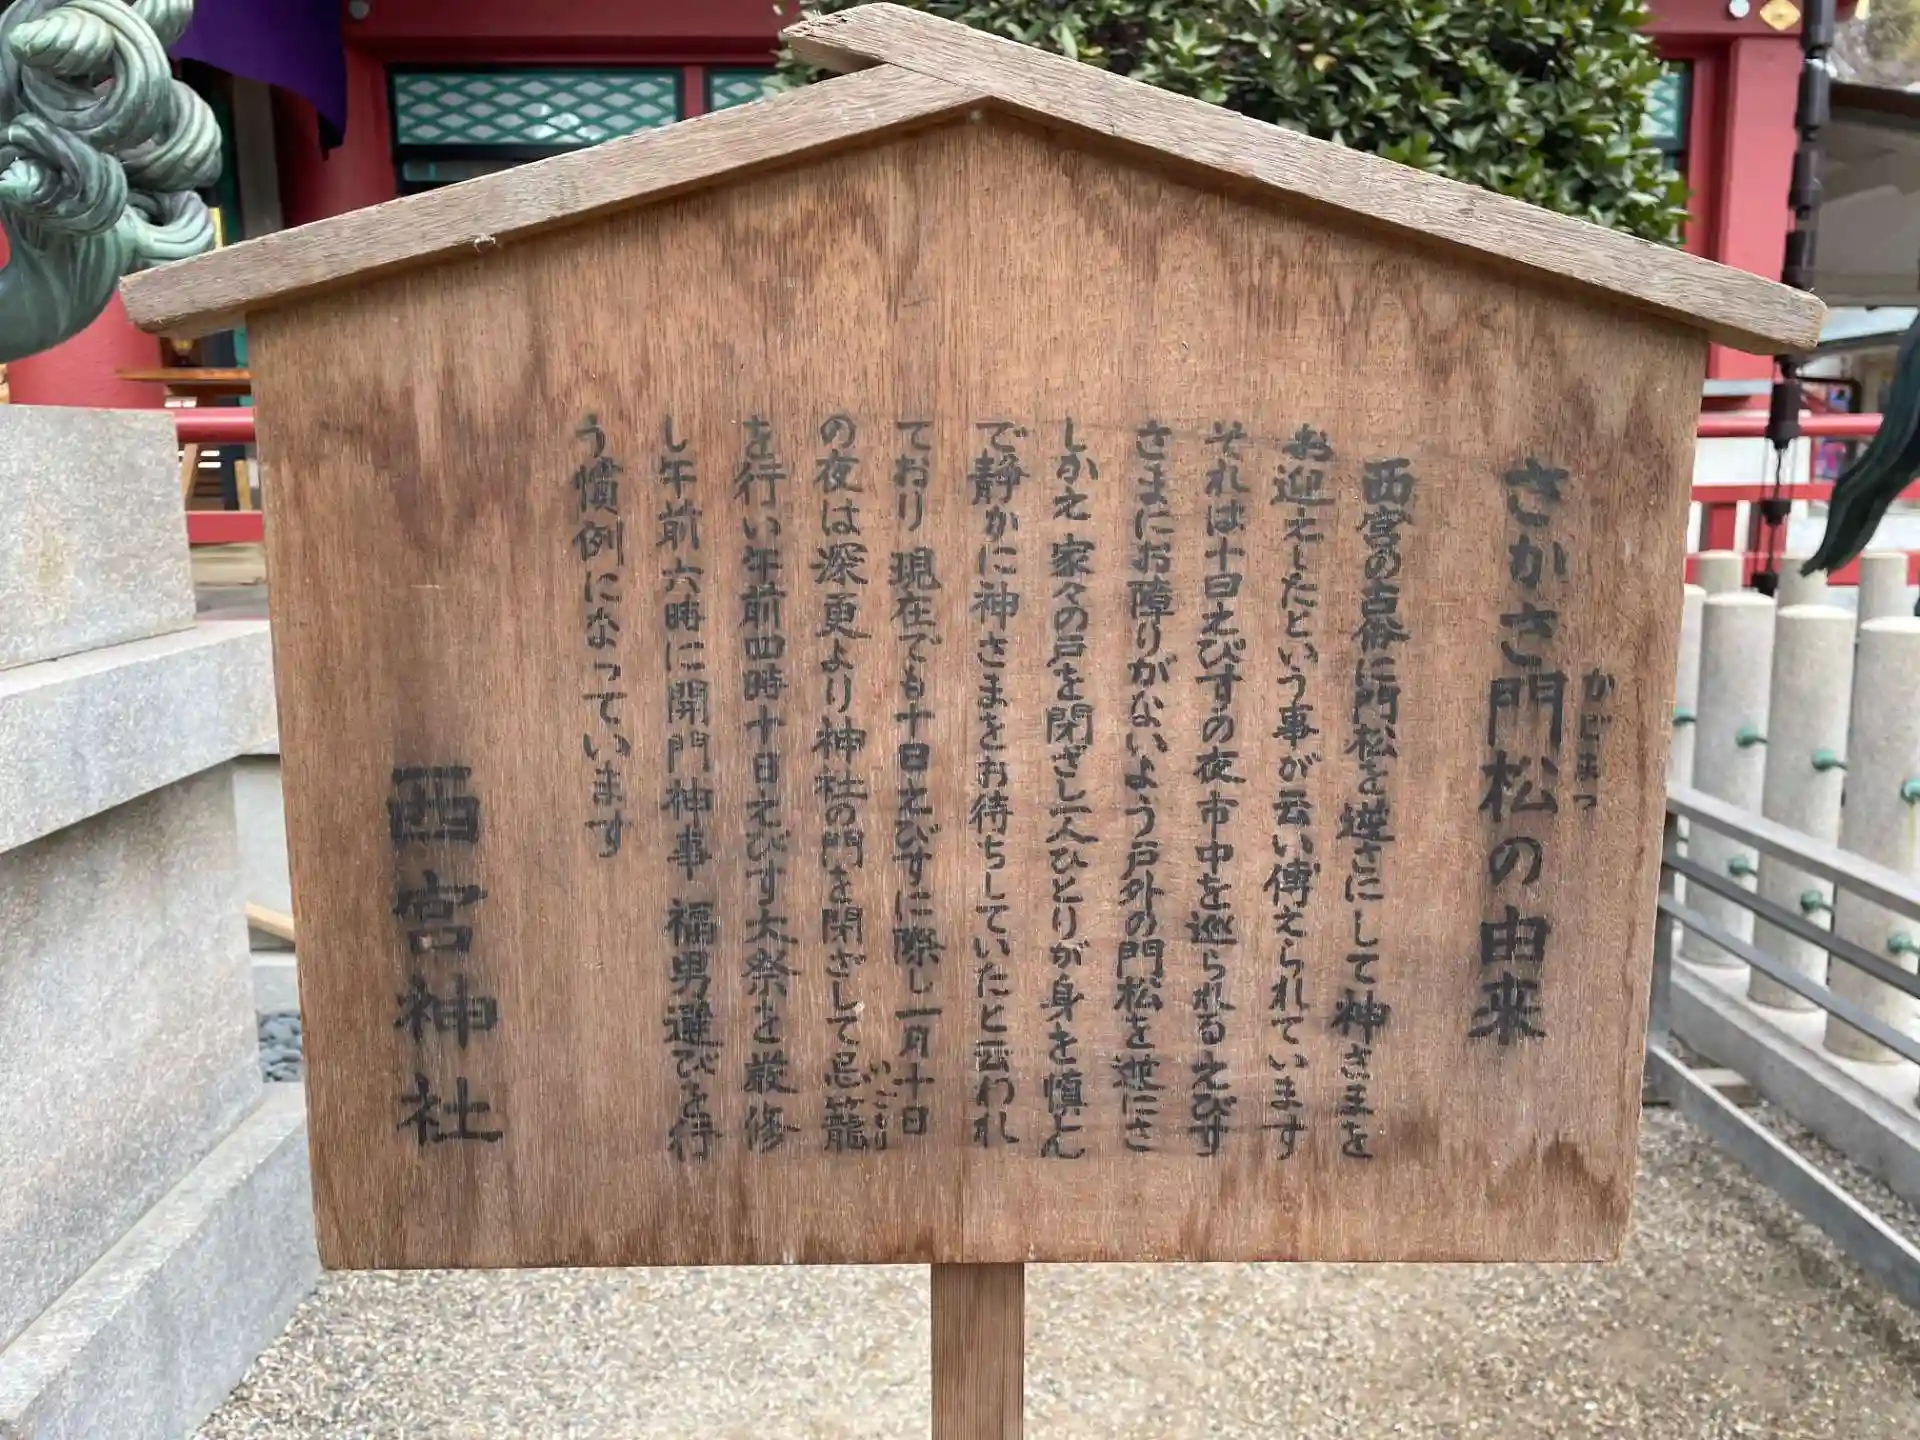 さかさ門松の由来
かどまつ
西宮の古俗に門松を逆さにして神さまを
お迎えしたという事が云い傳えられています
それは十日えびすの夜市中を巡られるえびす
さまにお障りがないよう戸外の門松を逆にさ
しかえ家々の戸を閉ざし一人ひとりが身を慎ん
で静かに神さまをお待ちしていたと云われ
ており 現在でも十日えびすに際し一月十日
の夜は深更より神社の門を閉ざして忌籠
いごもり
を行い午前四時十日えびす大祭を厳修
し午前六時に開門神事 福男選びを行
う慣例になっています
西宮神社